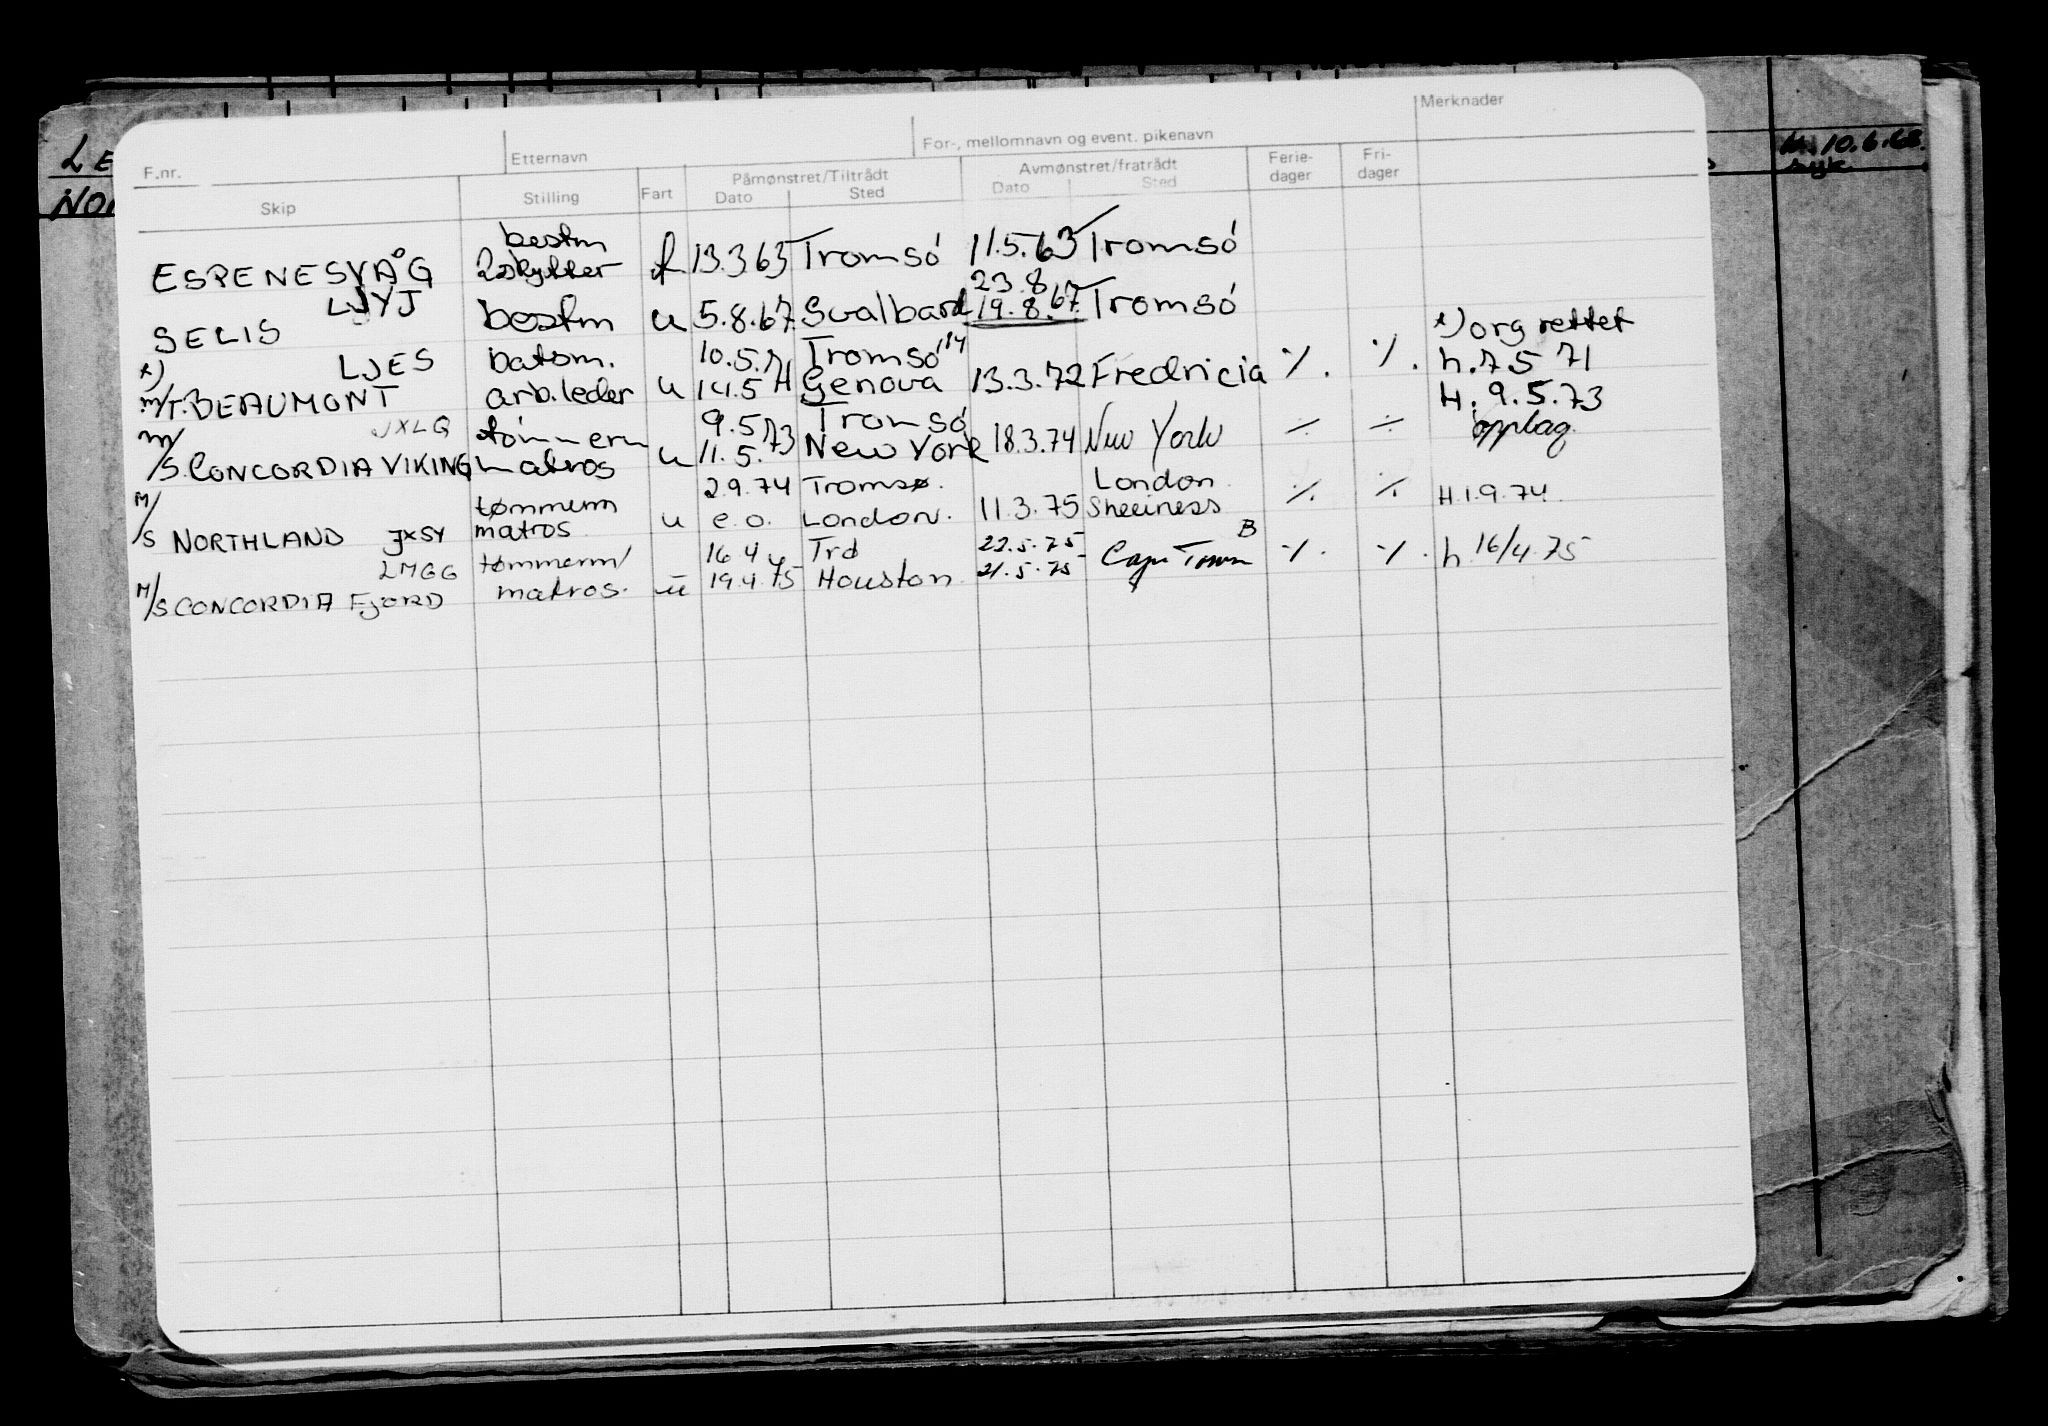 Merknader
F.nr.
Etternavn
For-, mellomnavn og event. pikenavn
Skip
Stilling
Fart
Påmønstret/Tiltrådt
Dato
Sted
Avmønstret/fratrådt
Dato
Sted
Ferie-
dager
Fri-
dager
bestm
ESPENESVÅG 2skytter f 13.3.63 Tromsó 11.5.63 Tromsó
LJYJ 23.8
SELIS bestm u 5.8.67 Svalbard 19.8.67 Tromsó
x) LJES batsm. 10.5.71 Tromsó x) org rettet
m/T. BEAUMONT arb.leder u 14.5 71 Genova 13.3.72 Fredricia ·/. ·/. h.7 5 71
JXLQ tómmerm 9.5.73 Tromsó H. 9.5.73
m/S. CONCORDIA VIKING matros u 11.5.73 New York 18.3.74 New York ÷ ÷ opplag.
tømmerm 2.9.74 Tromsø. London
M/S NORTHLAND JXSY matros u e.o. London. 11.3.75 Sheerness ·/. ·/. H.1.9.74
LMGG tømmerm/ 16 4 Trd 22.5.75 B
M/S CONCORDIA FJORD matros. u 19.4.75 Houston 21.5.75 Cape Town ·/. ·/. h 16/4.75
10.6.68.